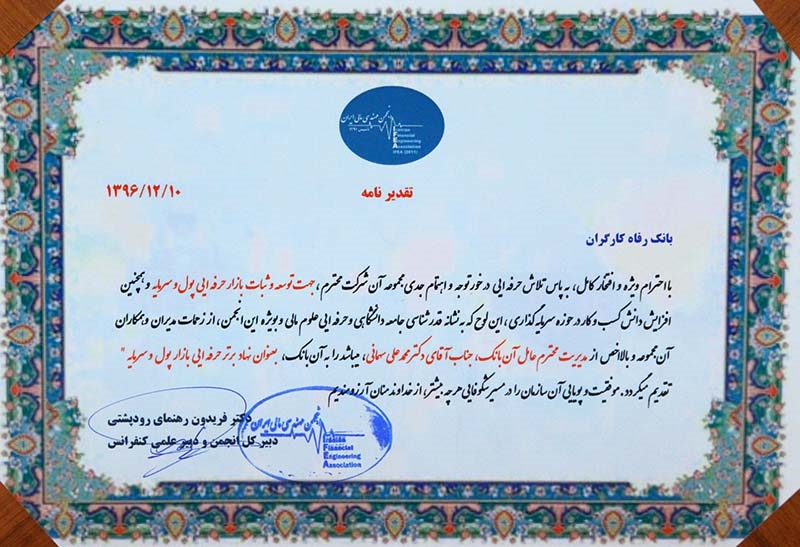 انجمن مهندسی مالی ایران
Iranian
Financial
Engineering
Association
IFEA (2011)
تقدیر نامه
۱۳۹۶/۱۲/۱۰
بانک رفاه کارگران
با احترام ویژه و افتخار کامل، به پاس تلاش حرفه ایی درخور توجه و اهتمام جدی مجموعه آن شرکت محترم، جهت توسعه و ثبات بازار حرفه ایی پول و سرمایه و همچنین
افزایش دانش کسب و کار در حوزه سرمایه گذاری، این لوح که به نشانه قدرشناسی جامعه دانشگاهی و حرفه ایی علوم مالی و بویژه این انجمن، از زحمات مدیران و همکاران
آن مجموعه و بالاخص از مدیریت محترم عامل آن بانک، جناب آقای دکتر محمد علی سهمانی، میباشد را به آن بانک، بعنوان نهاد برتر حرفه ایی بازار پول و سرمایه "
تقدیم میگردد. موفقیت و پویایی آن سازمان را در مسیر شکوفایی هر چه بیشتر، از خداوند منان آرزومندیم
دکتر فریدون رهنمای رودپشتی
دبیر کل انجمن و دبیر علمی کنفرانس
انجمن مهندسی مالی ایران
Iranian
Financial
Engineering
Association